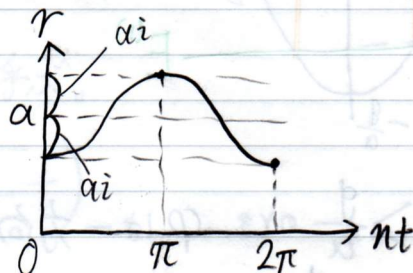 r
ai
a
ai
0
π
2π
nt